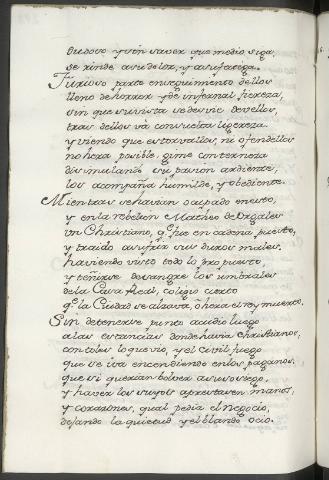 dudoso y sin saver que medio siga,
se rinde a su dolor, y a su fatiga.
Furioso parte en seguimiento dellos
lleno de horror y de infernal fiereza,
sin que su vista se desvie de vellos,
tras dellos vá con suelta ligereza
y viendo que estorvallos, ni ofendellos
no hera posible, gime con terneza
disimulando su pasion ardiente,
los acompaña humilde, y obediente.
Mientras se havian ocupado en esto,
y en la rebelion Matheo de
Un Christiano, q.e fue en cadena puesto,
y traido a sufrir sus duros males,
haviendo visto todo lo propuesto,
y teñirse de sangre los umbrales
de la Casa Real, coligió cierto
q.e la Ciudad se alzava, ó hera el rey muerto.
Sin detenerse punto acudio luego
a las estancias donde havia Christianos,
contoles lo que vió, y el civil fuego
que se iva encendiendo en los paganos,
que si querian bolver a su sosiego,
y haver los suyos aprestasen manos,
y corazones, qual pedia el negocio,
dejando la quietud y el blando ocio.